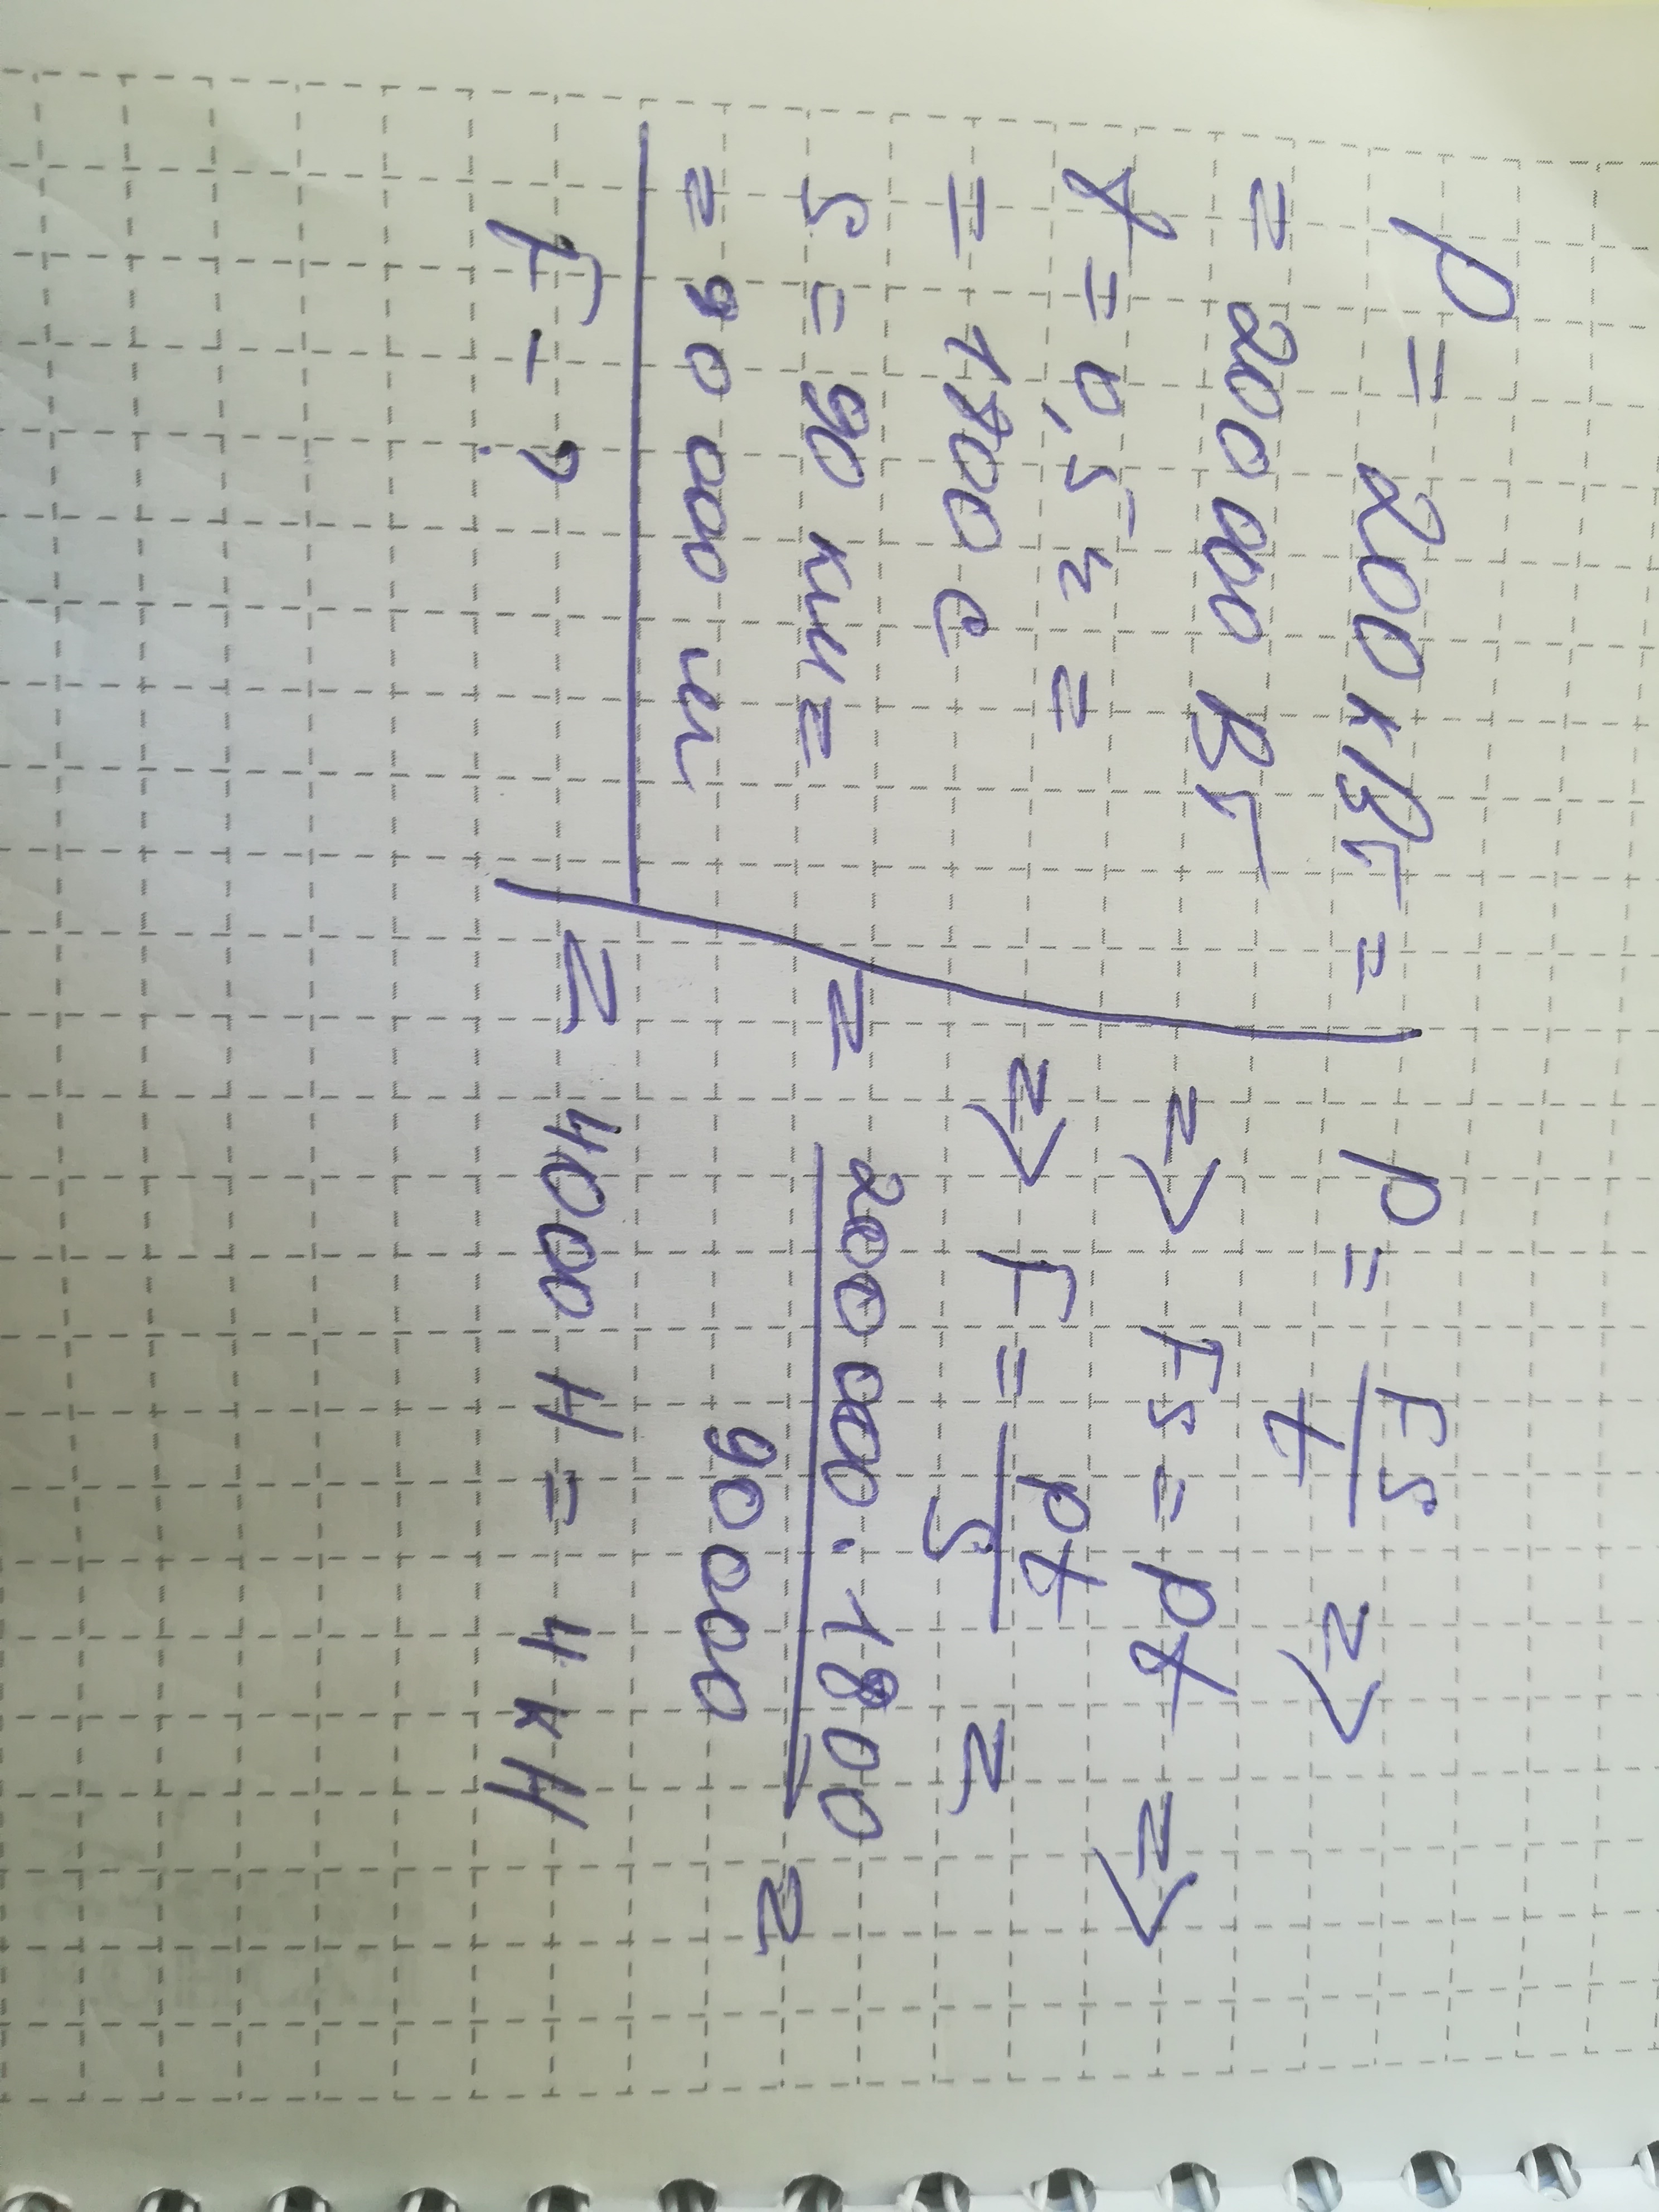 P = 200 кВт =
= 200 000 Вт
t = 0,5 ч =
= 1800 с
S = 90 км =
= 90 000 м
F - ?
P = Fs/t =>
=> Fs = Pt =>
=> F = Pt/S =
= 200 000 · 1800 / 90000 =
= 4000 Н = 4 кН